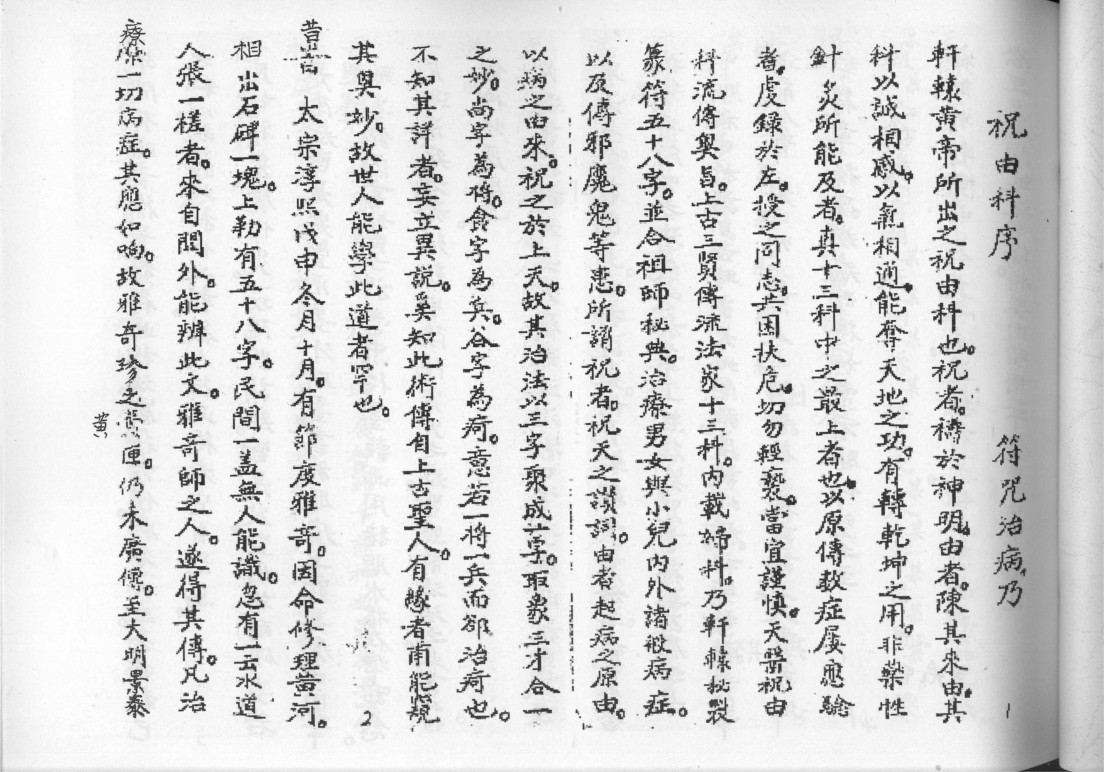 祝由科序　符咒治病乃
軒轅黃帝所出之祝由科也。祝者。禱於神明。由者。陳其來由。其
科以誠相感。以氣相通。能奪天地之功。有轉乾坤之用。非藥性
針灸所能及者。真十三科中之最上者也。以原傳数症屢應驗
者。虔錄於左。授之同志。共困扶危。切勿輕褻。當宜謹慎。天醫祝由
科流傳奧旨。上古三賢傳流法家十三科。內載婦科。乃軒轅秘製
篆符五十八字。並合祖師秘典。治療男女與小兒內外諸般病症。
以及傳邪魔鬼等患。所謂祝者。祝天之讃詞。由者起病之原由。
1
以病之由來。祝之於上天。故其治法以三字聚成一字。取象三才合一
之妙。尚字為將。食字為兵。谷字為疴。意若一將一兵而卻治疴也。
不知其詳者。妄立異說。奚知此術傳自上古聖人。有緣者甫能窺
其奧妙。故世人能學此道者罕也。
2
昔
太宗淳熙戊申冬月十月。有節度雅奇。因命修理黃河。
相出石碑一塊。上勒有五十八字。民間一盖無人能識。忽有一雲水道
人張一槎者。來自閩外。能辨此文。雅奇師之人。遂得其傳。凡治
療 一切病症。其應如响。故雅奇珍之 匣。仍未廣傳。至大明景泰
黃